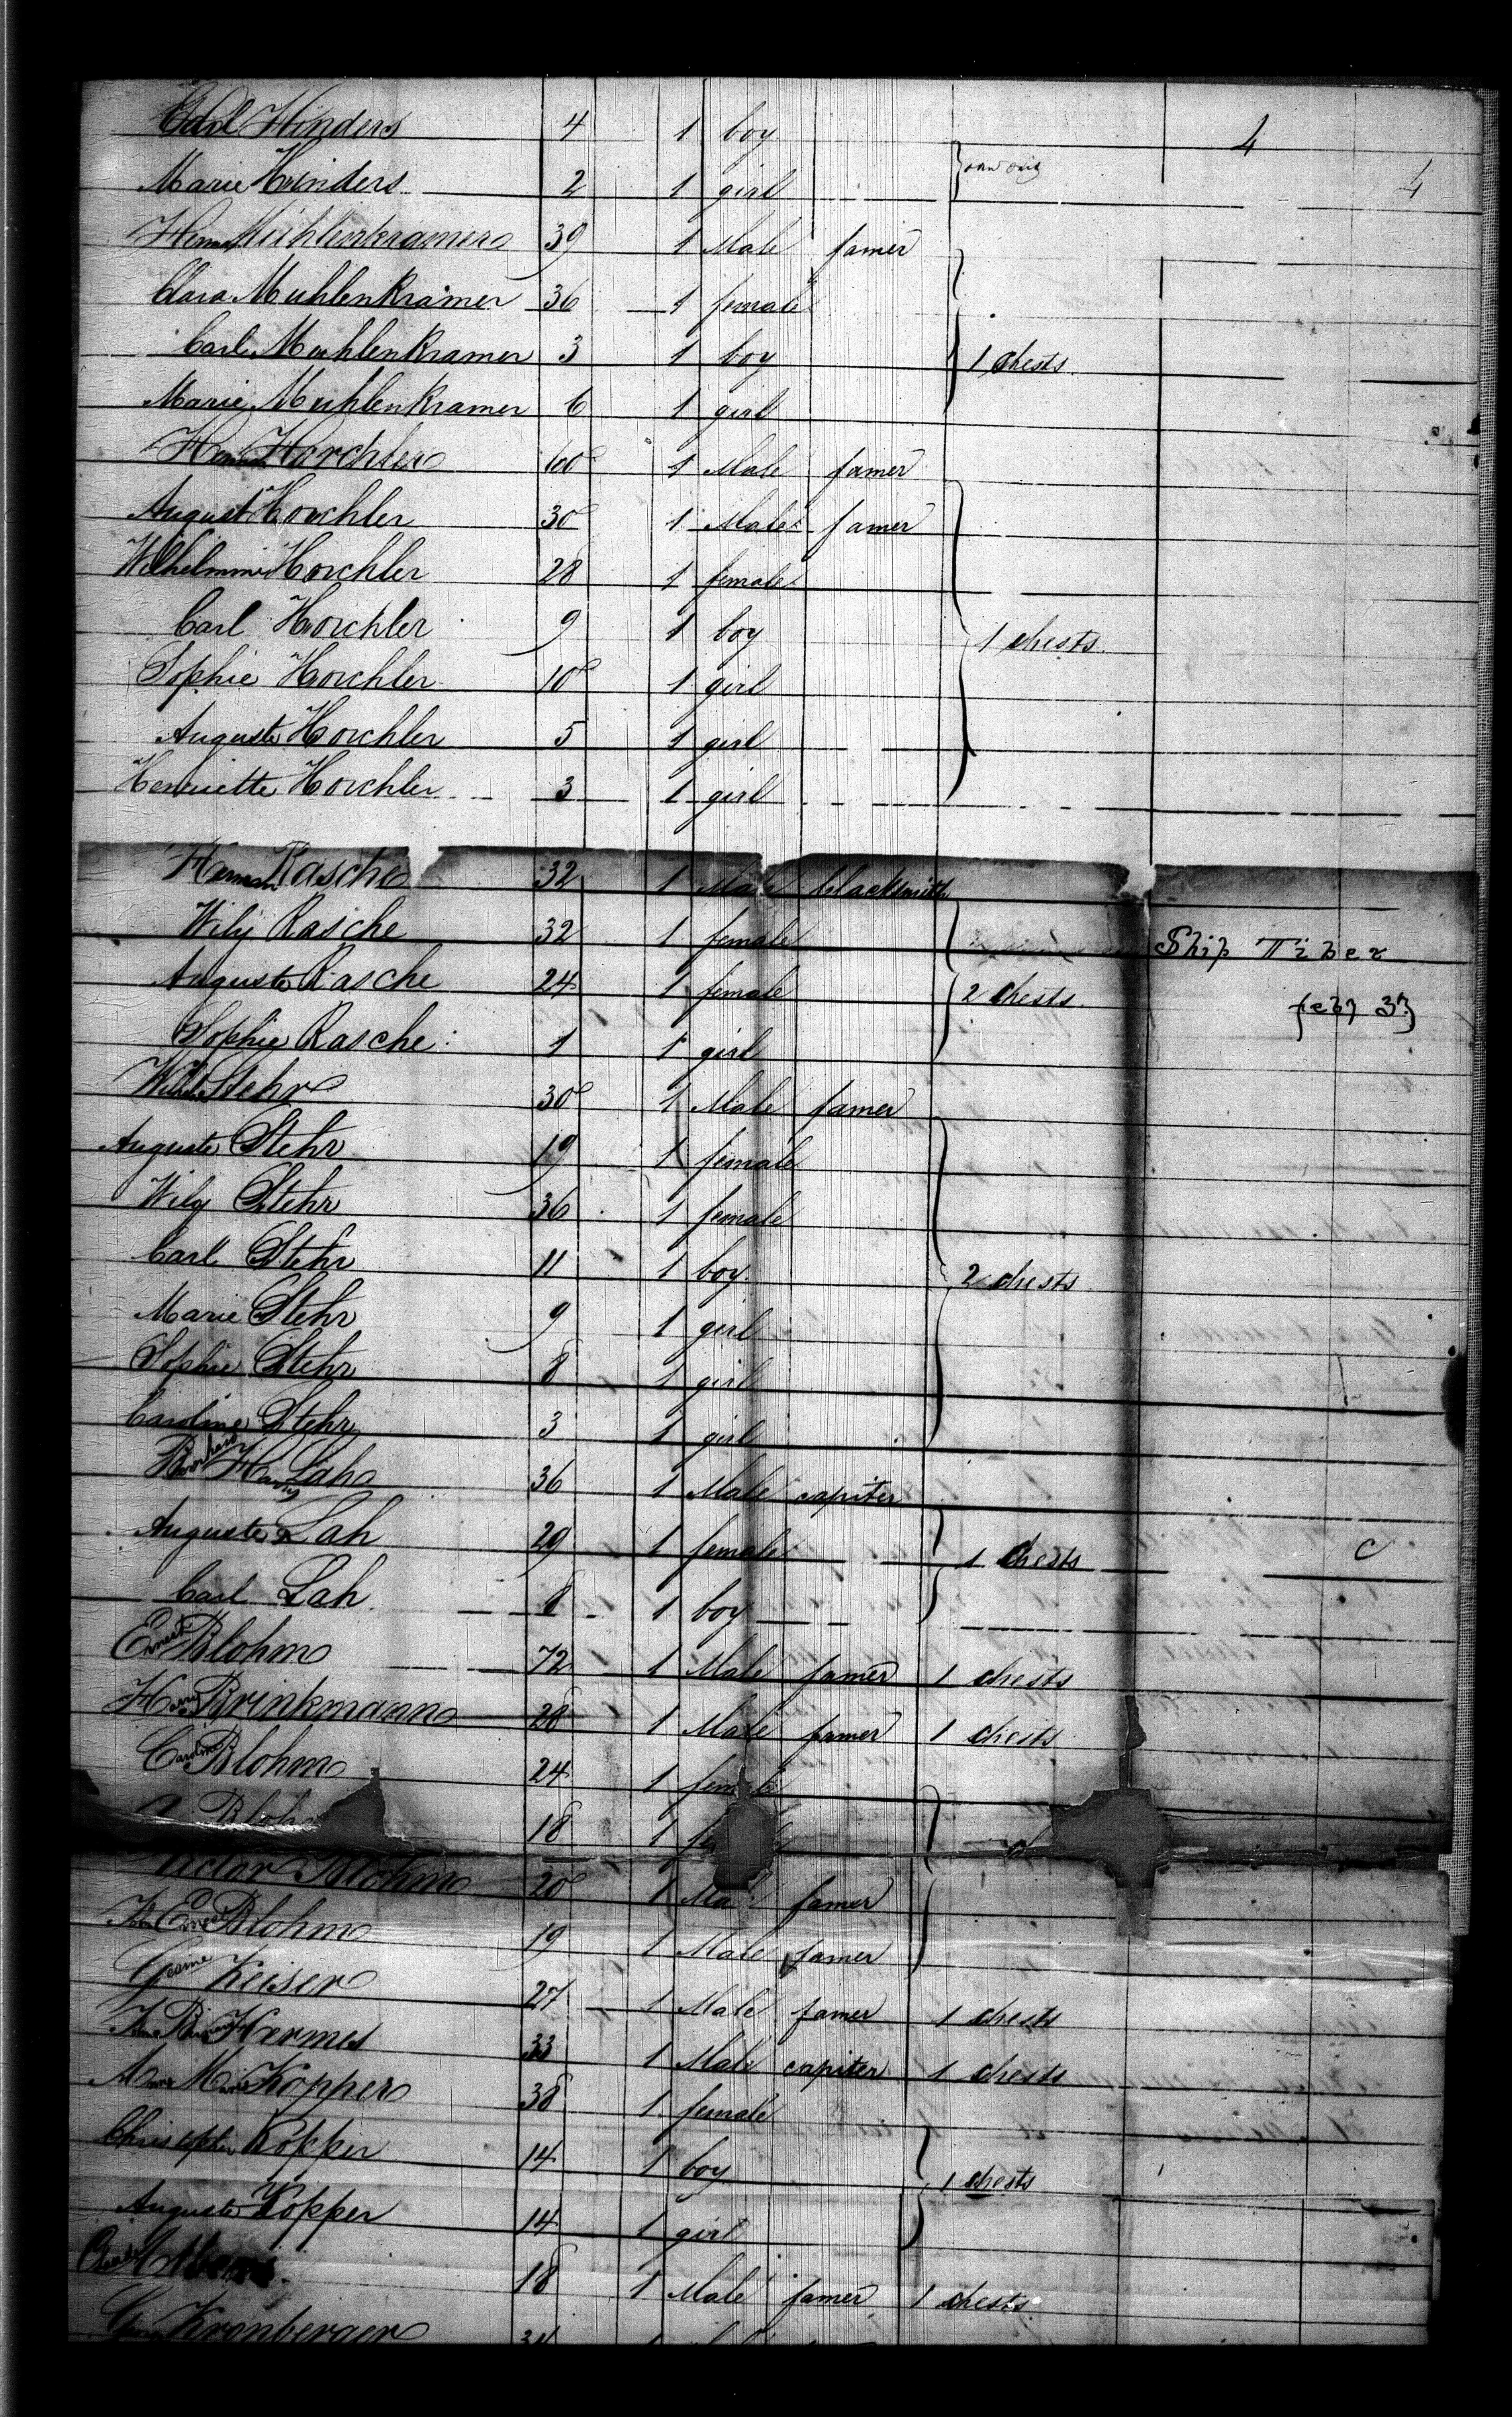 Carl Hinders 4 1 boy 4
Marie Hinders 2 1 girl 4
Herm Muhlenkramer 39 1 Male famer
Clara Muhlenkramer 36 1 female
Carl Muhlenkramer 3 1 boy 1 chests
Marie Muhlenkramer 6 1 girl
Horchler 60 1 Male famer
August Horchler 30 1 Male famer
Wilhelmine Horchler 28 1 female
Carl Horchler 9 1 boy 1 chests
Sophie Horchler 10 1 girl
Auguste Horchler 5 1 girl
Henriette Horchler 3 1 girl
Herman Rasche 32 1 Male blacksmith
Wily Rasche 32 1 female Ship Tiber
Auguste Rasche 24 1 female 2 chests feby 37
Sophie Rasche 1 1 girl
Stehr 30 1 Male famer
Auguste Stehr 19 1 female
Wily Stehr 36 1 female
Carl Stehr 11 1 boy 2 chests
Marie Stehr 9 1 girl
Sophie Stehr 8 1 girl
Caroline Stehr 3 1 girl
Lah 36 1 Male capiter
Auguste Lah 29 1 female 1 chests
Carl Lah 8 1 boy
Ernest Blohm 72 1 Male famer 1 chests
Brinkmann 28 1 Male famer 1 chests
Caroline Blohm 24 1 female
Blohm 18 1
Victor Blohm 20 1 Male famer
Ernest Blohm 19 1 Male famer
Keiser 27 1 Male famer 1 chests
Hermes 33 1 Male capiter 1 chests
Marie Kopper 38 1 female
Christopher Kopper 14 1 boy 1 chests
Auguste Kopper 14 1 girl
18 1 Male famer 1 chests
Kronberger